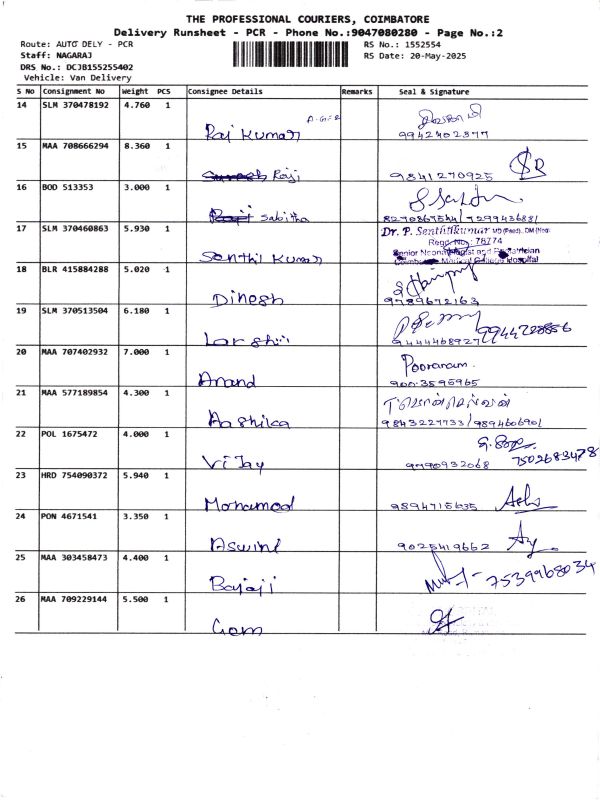 THE PROFESSIONAL COURIERS, COIMBATORE
Delivery Runsheet - PCR - Phone No.:9047080280 - Page No.:2
Route: AUTO DELY - PCR RS No.: 1552554
Staff: NAGARAJ RS Date: 20-May-2025
DRS No.: DCJB155255402
Vehicle: Van Delivery
S No Consignment No Weight PCS Consignee Details Remarks Seal & Signature
14 SLM 370478192 4.760 1
Raj Kumar 9942402377
15 MAA 708666294 8.360 1
Raji 9841270925 SR
16 BOD 513353 3.000 1
Sabitha
17 SLM 370460863 5.930 1 Dr. P. Senthilkumar
Regd. No.: 76774
Senthil Kumar Senior Neonatologist and Pediatrician
Coimbatore Medical College Hospital
18 BLR 415884288 5.020 1
Dinesh 9789672163
19 SLM 370513504 6.180 1
9444468927
20 MAA 707402932 7.000 1 Pooranam.
Anand
21 MAA 577189854 4.300 1
Aashika 9843227733/9894606901
22 POL 1675472 4.000 1
Vijay 9790932068 7502683478
23 HRD 754090372 5.940 1
Mohamed 9894715635
24 PON 4671541 3.350 1
Aswini 9025419662
25 MAA 303458473 4.400 1
Balaji 7539968034
26 MAA 709229144 5.500 1
Gem